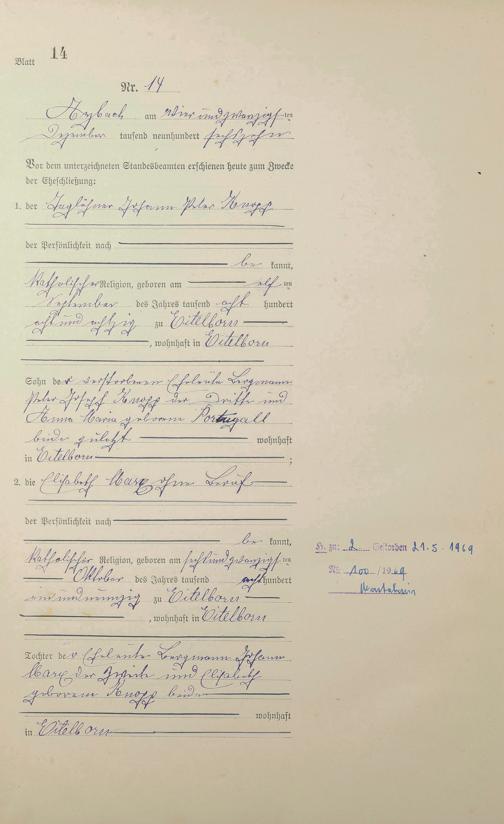 Blatt 14
Nr. 14
Arzbach am vierundzwanzigsten
Dezember tausend neunhundert sechszehn
Vor dem unterzeichneten Standesbeamten erschienen heute zum Zwecke
der Eheschließung:
1. der Taglöhner Johann Peter Knopp
der Persönlichkeit nach
be kannt,
katholischer Religion, geboren am elf ten
September des Jahres tausend acht hundert
acht und achtzig zu Eitelborn
, wohnhaft in Eitelborn
Sohn der verstorbenen Eheleute Bergmann
Peter Joseph Knopp der Dritte und
Anna Maria geborene Portugall
beide zuletzt wohnhaft
in Eitelborn ;
2. die Elisabeth Marx ohne Beruf
der Persönlichkeit nach
be kannt,
katholischer Religion, geboren am sechsundzwanzigsten
Oktober des Jahres tausend acht hundert
einundneunzig zu Eitelborn
, wohnhaft in Eitelborn
Tochter der Eheleute Bergmann Johann
Marx der Zweite und Elisabeth
geborene Knopp beide
wohnhaft
in Eitelborn
zu: 2 Gestorben 21.5.1969
Nr. 100 / 1969